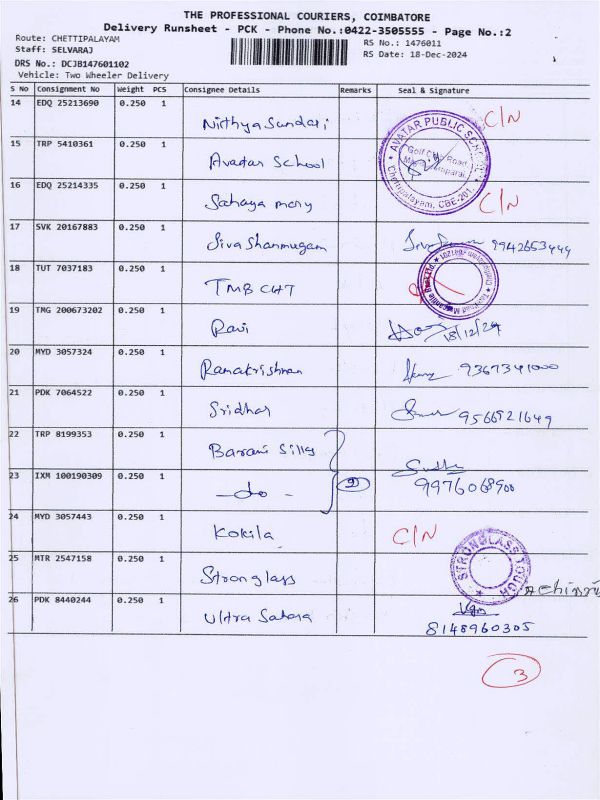 THE PROFESSIONAL COURIERS, COIMBATORE
Delivery Runsheet - PCK - Phone No.:0422-3505555 - Page No.:2
Route: CHETTIPALAYAM
Staff: SELVARAJ
RS No.: 1476011
RS Date: 18-Dec-2024
DRS No.: DCJB147601102
Vehicle: Two Wheeler Delivery
S No Consignment No Weight PCS Consignee Details Remarks Seal & Signature
14 EDQ 25213690 0.250 1 Nithya Sundari C/N
15 TRP 5410361 0.250 1 Avatar School
AVATAR PUBLIC SCHOOL
Golf Club Road
Chettipalayam, CBE-201.
16 EDQ 25214335 0.250 1 Sahaya mary C/N
17 SVK 20167883 0.250 1 Siva Shanmugam 9942653449
18 TUT 7037183 0.250 1 TMB CHT
19 TMG 200673202 0.250 1 Ravi 18/12/24
20 MYD 3057324 0.250 1 Ramakrishnan 9367341000
21 PDK 7064522 0.250 1 Sridhar 9566921649
22 TRP 8199353 0.250 1 Barani Silks
23 IXM 100190309 0.250 1 - do - 2 9976068900
24 MYD 3057443 0.250 1 Kokila C/N
25 MTR 2547158 0.250 1 Stronglass
STRONGLASS TOUGH
26 PDK 8440244 0.250 1 Ultra Sahara
8148960305
3